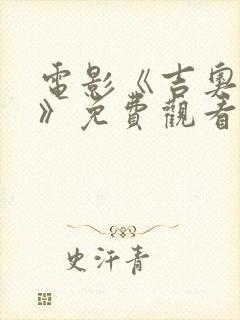 電影《吉奧
》免費觀看
史汗青